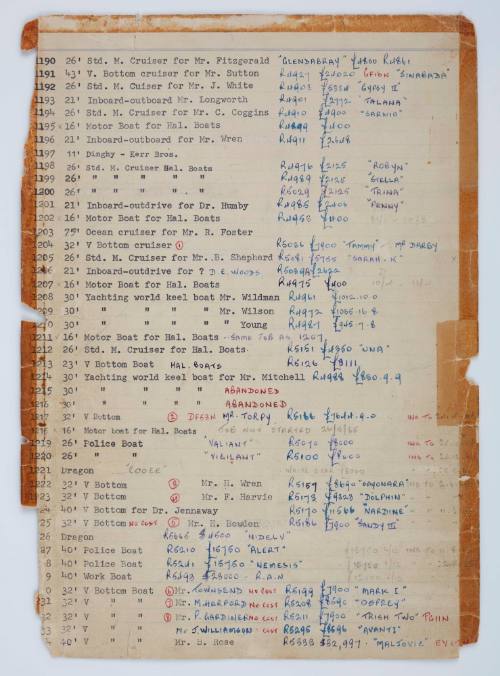 1190 26' Std. M. Cruiser for Mr. Fitzgerald "GLENDABRAY" £4800 R4861
1191 43' V. Bottom cruiser for Mr. Sutton R4927 £24020 "SINABADA"
1192 26' Std. M. Cuiser for Mr. J. White R4903 "GYPSY II"
1193 21' Inboard-outboard Mr. Longworth R4901 £2772 "TALANA"
1194 26' Std. M. Cruiser for Mr. C. Coggins R4910 £4900 "SARNIO"
1195 16' Motor Boat for Hal. Boats R4899 £1400
1196 21' Inboard-outboard for Mr. Wren R4911 £2648
1197 11' Dinghy - Kerr Bros.
1198 26' Std. M. Cruiser Hal. Boats R4976 £2125 "ROBYN"
1199 26' " " " " " R4989 £2125 "STELLA"
1200 26' " " " " " R5029 £2125 "TRINA"
1201 21' Inboard-outdrive for Dr. Humby R4985 £2406 "PENNY"
1202 16' Motor Boat for Hal. Boats R4958 £1400
1203 75' Ocean cruiser for Mr. R. Foster
1204 32' V Bottom cruiser 1 R5026 £7900 "TAMMY" MR DARBY
1205 26' Std. M. Cruiser for Mr. B. Shepherd R5081 £5755 "SARAH.K"
1206 21' Inboard-outdrive for ? D.E. WOODS £2622
1207 16' Motor Boat for Hal. Boats R4975 £400
1208 30' Yachting world keel boat Mr. Wildman R4961 £1012.10.0
1209 30' " " " " Mr. Wilson R4972 £1055.16.8
1210 30' " " " " " Young R4987 £945.7.8
1211 16' Motor Boat for Hal. Boats - SAME JOB AS 1207
1212 26' Std. M. Cruiser for Hal. Boats R5151 £4350 "UNA"
1213 23' V Bottom Boat HAL. BOATS R5126 £3111
1214 30' Yachting world keel boat for Mr. Mitchell R4988 £850.9.9
1215 30' " " " " ABANDONED
30' " " " " ABANDONED
1217 32' V Bottom 2 MR. TORPY R5166
1218 16' Motor boat for Hal. Boats JOB NOT STARTED
1219 26' Police Boat "VALIANT" R5070 £8000
1220 26' " " "VIGILANT" R5100 £8000
1221 Dragon "COOEE"
1222 32' V Bottom 3 Mr. H. Wren R5157 £8690 "SAYONARA"
1223 32' V Bottom 4 Mr. F. Harvie R5173 £9323 "DOLPHIN"
24 40' V Bottom for Dr. Jennaway R5170 £11566 "NARDINE"
25 32' V Bottom NO COST 5 Mr. H. Bowden R5186 £7900 "SANDY III"
26 Dragon R5665 $4500 "NIDELV"
7 40' Police Boat R5210 £15750 "ALERT"
8 40' Police Boat R5241 £15750 "NEMESIS"
9 40' Work Boat R5493 $23000 - R.A.N
0 32' V Bottom Boat 6 Mr. TOWNSEND NO COST R5199 £7900 "MARK I"
31 32' V " " 7 Mr. M. HARFORD NO COST R5208 £8590 "OSPREY"
32 32' V " " 8 Mr. P. GARDINER NO COST R5211 £7900 "TRISH TWO"
33 32' V " " Mr J. WILLIAMSON - COST R5295 £8596 "AVANTI"
40' V " " Mr. B. Rose $32,997 "MALJOVIC"